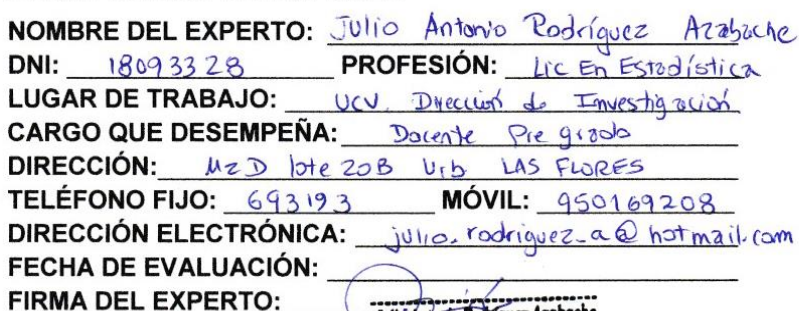 NOMBRE DEL EXPERTO: Julio Antonio Rodríguez Azabache
DNI: 18093328 PROFESIÓN: Lic En Estadística
LUGAR DE TRABAJO: UCV. Dirección de Investigación
CARGO QUE DESEMPEÑA: Docente Pre grado
DIRECCIÓN: Mz D lote 20B Urb LAS FLORES
TELÉFONO FIJO: 693193 MÓVIL: 950169208
DIRECCIÓN ELECTRÓNICA: julio.rodriguez_a@hotmail.com
FECHA DE EVALUACIÓN:
FIRMA DEL EXPERTO: